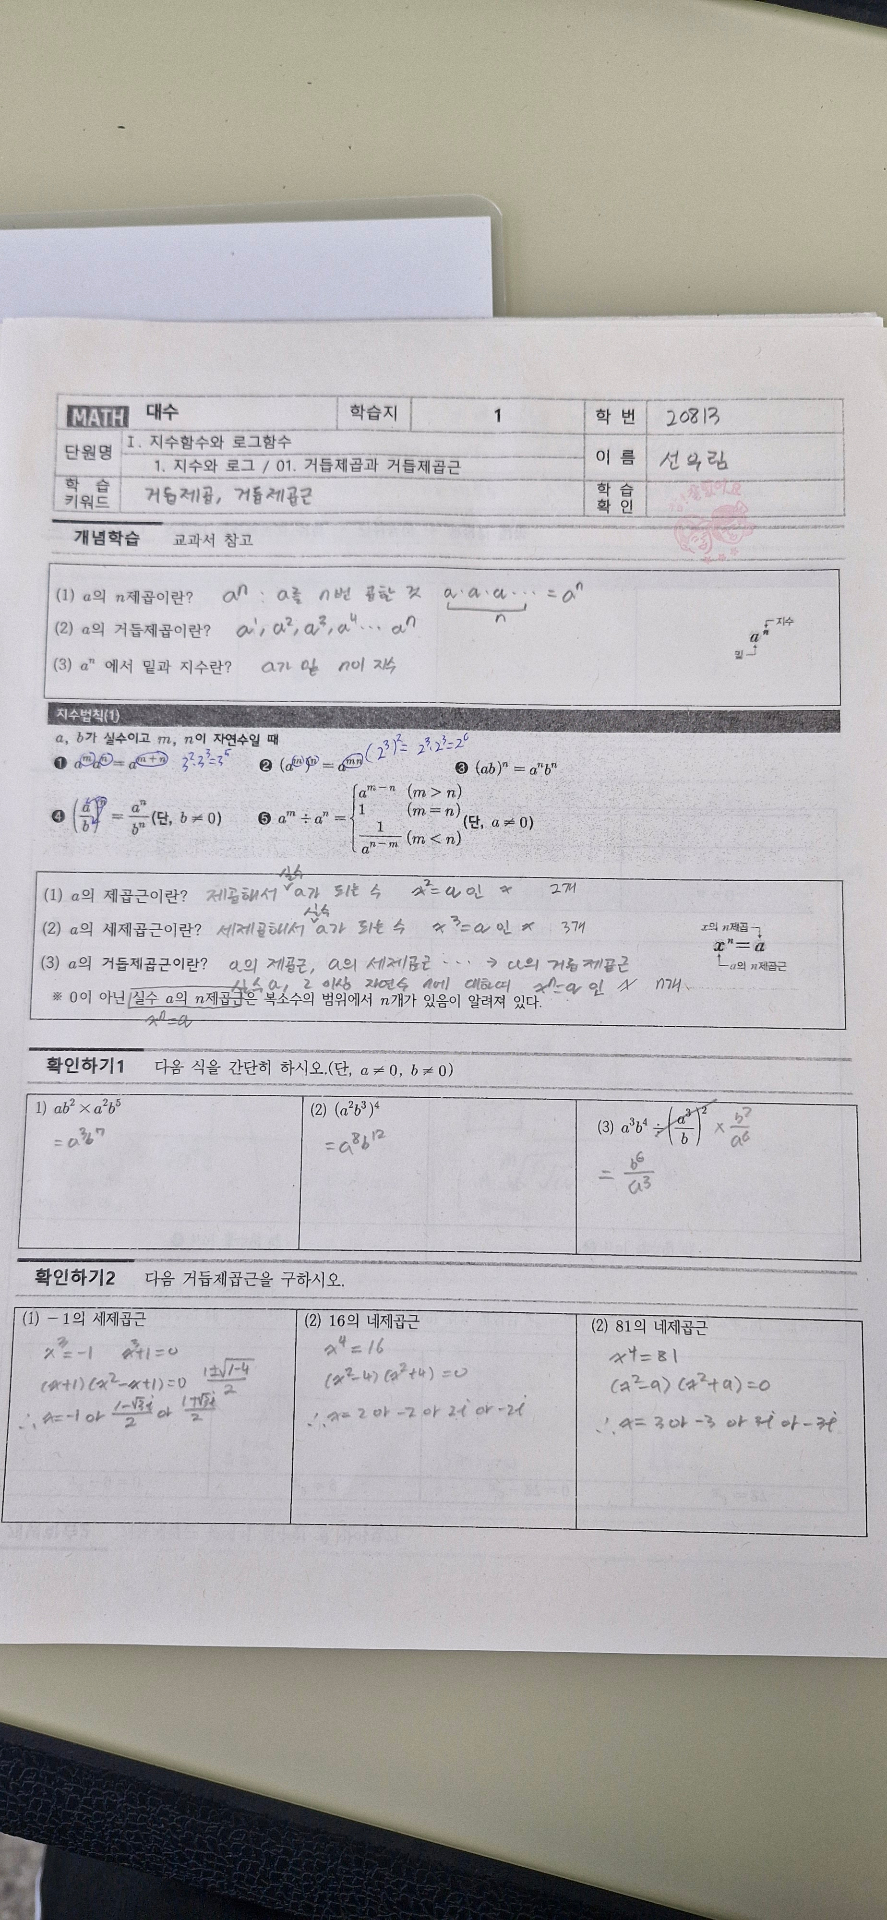 MATH 대수 학습지 1 학 번 20813
단원명 I. 지수함수와 로그함수
1. 지수와 로그 / 01. 거듭제곱과 거듭제곱근 이 름 선우림
학 습 키워드 거듭제곱, 거듭제곱근 학 습 확 인
개념학습 교과서 참고
(1) a의 n제곱이란? aⁿ : a를 n번 곱한 것 a·a·a··· = aⁿ
n
(2) a의 거듭제곱이란? a¹, a², a³, a⁴ ··· aⁿ
aⁿ 지수 밑
(3) aⁿ 에서 밑과 지수란? a가 밑 n이 지수
지수법칙(1)
a, b가 실수이고 m, n이 자연수일 때
❶ aᵐaⁿ = aᵐ⁺ⁿ ❷ (aᵐ)ⁿ = aᵐⁿ (2³)² = 2³·2³=2⁶ ❸ (ab)ⁿ = aⁿbⁿ
❹ (a/b)ⁿ = aⁿ/bⁿ (단, b ≠ 0) ❺ aᵐ ÷ aⁿ = { aᵐ⁻ⁿ (m > n)
1 (m = n)
1/aⁿ⁻ᵐ (m < n) (단, a ≠ 0)
실수
(1) a의 제곱근이란? 제곱해서 a가 되는 수 x² = a 인 x 2개
실수
(2) a의 세제곱근이란? 세제곱해서 a가 되는 수 x³ = a 인 x 3개
x의 n제곱
xⁿ = a
a의 n제곱근
(3) a의 거듭제곱근이란? a의 제곱근, a의 세제곱근 ··· → a의 거듭제곱근
실수 a, 2 이상 자연수 n에 대하여 xⁿ = a 인 x n개.
※ 0이 아닌 실수 a의 n제곱근은 복소수의 범위에서 n개가 있음이 알려져 있다.
xⁿ = a
확인하기1 다음 식을 간단히 하시오.(단, a ≠ 0, b ≠ 0)
1) ab² × a²b⁵
= a³b⁷
(2) (a²b³)⁴
= a⁸b¹²
(3) a³b⁴ ÷ (a³/b)² × b²/a⁶
= b⁶/a³
확인하기2 다음 거듭제곱근을 구하시오.
(1) −1의 세제곱근
x³ = -1 x³+1=0
(x+1)(x²-x+1)=0 1±√1-4/2
∴ x=-1 or 1-√3i/2 or 1+√3i/2
(2) 16의 네제곱근
x⁴ = 16
(x²-4)(x²+4)=0
∴ x= 2 or -2 or 2i or -2i
(2) 81의 네제곱근
x⁴ = 81
(x²-9)(x²+9)=0
∴ x= 3 or -3 or 3i or -3i